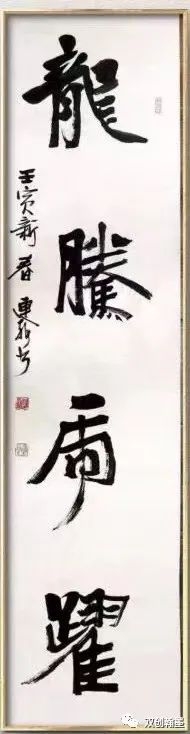 龍騰虎躍
壬寅新春
双创翰墨